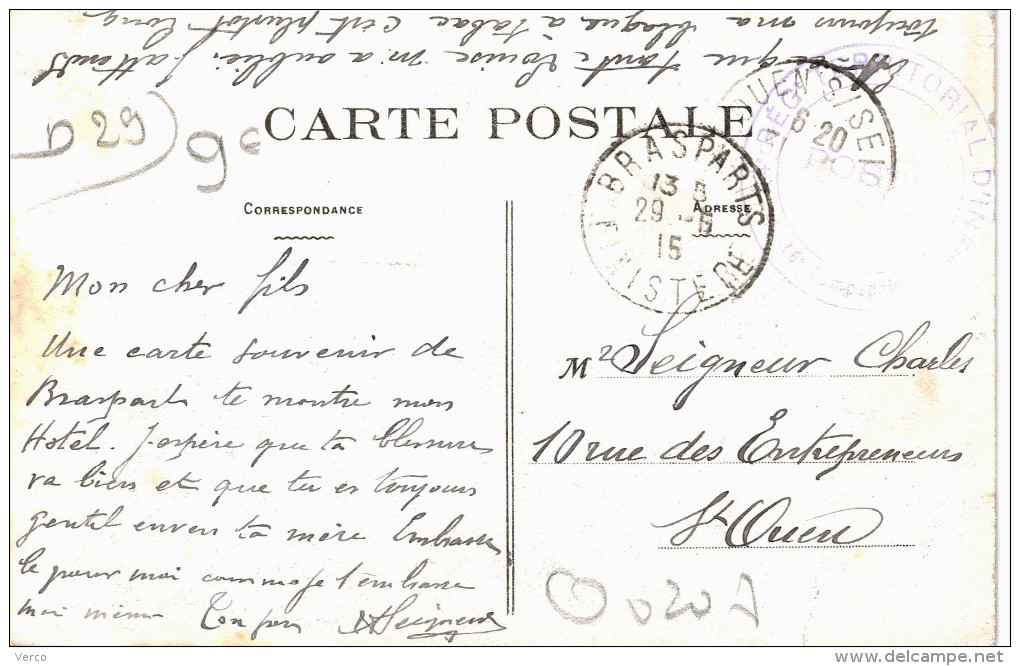 Est-ce que tante Louise m'a oublié. J'attends
toujours ma blague à tabac c'est plutôt long
CARTE POSTALE
D 29
CORRESPONDANCE
ADRESSE
BRASPARTS
13 5
29 -6
15
FINISTERE
OUEN S/SEI
6 20
TERRITORIAL D'IN
POS
16e Compagnie
Mon cher fils
Une carte souvenir de
Brasparts te montre mon
Hotel. J'espère que ta blessure
va bien et que tu es toujours
gentil envers ta mère Embrasse
le pour moi comme je t'embrasse
moi même Ton père Seigneur
Mr Seigneur Charles
10 rue des Entrepreneurs
St Ouen
Verco
www.delcampe.net